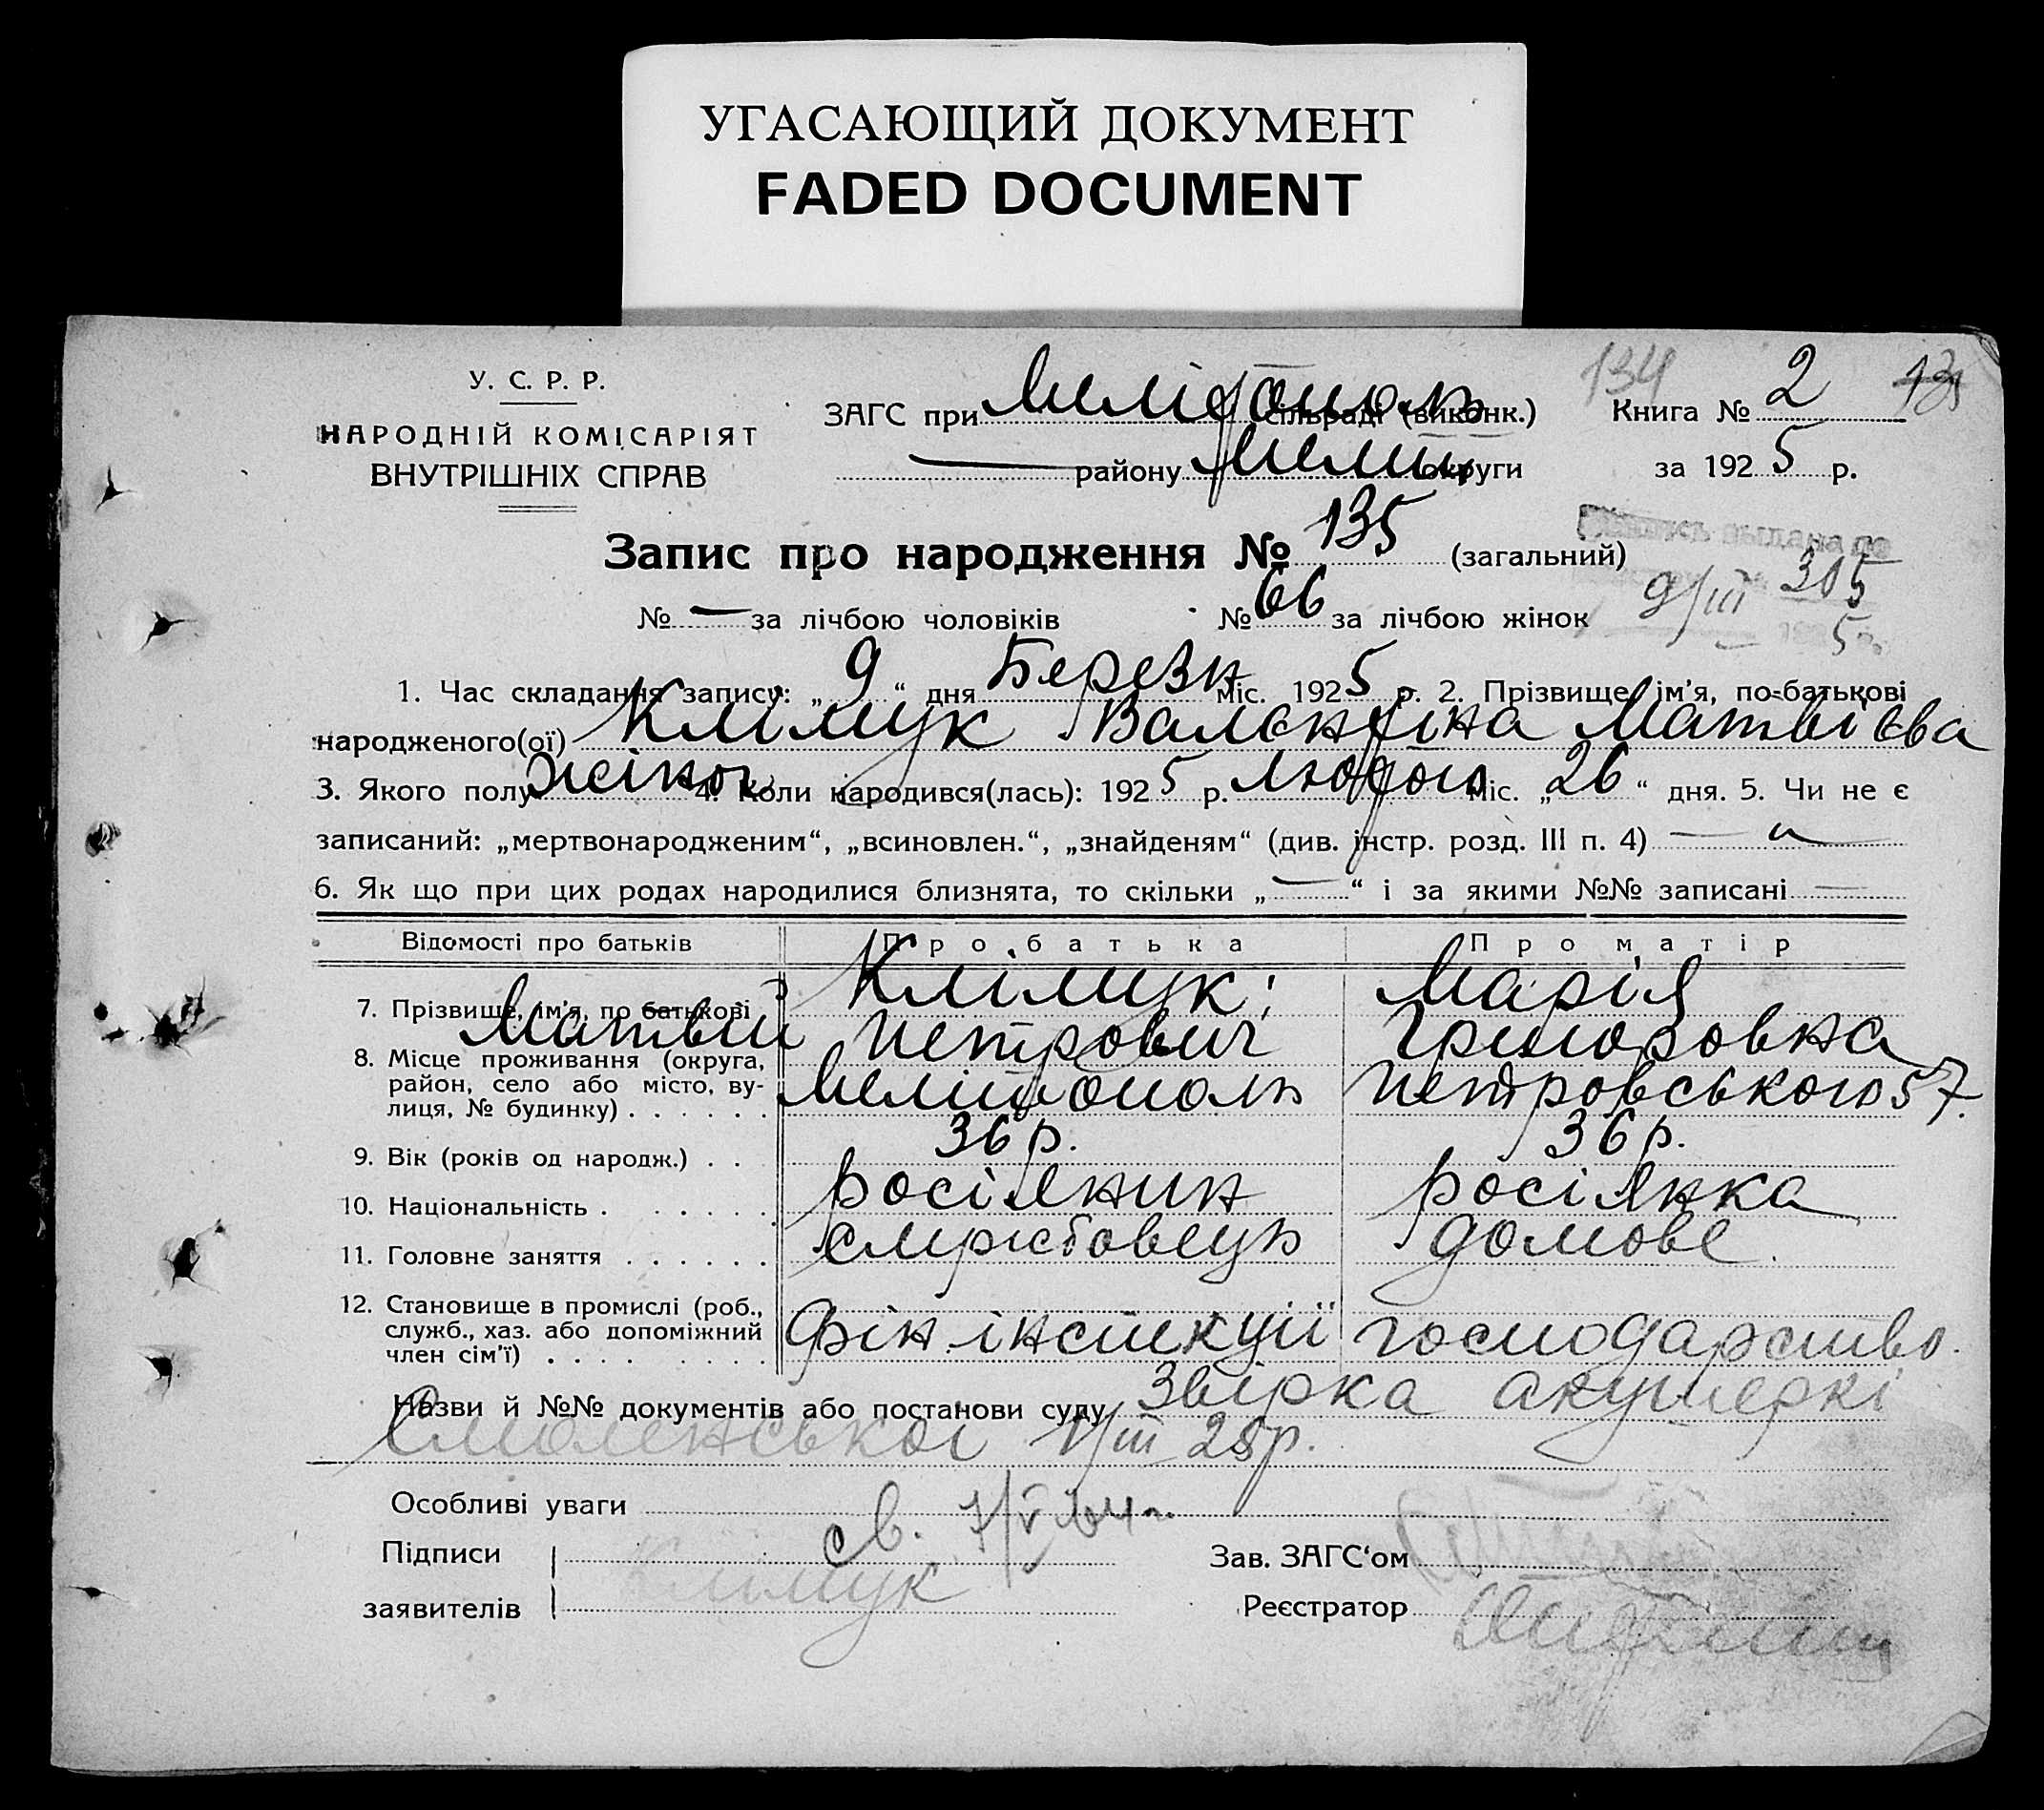 УГАСАЮЩИЙ ДОКУМЕНТ
FADED DOCUMENT
У. С. Р. Р.
НАРОДНІЙ КОМІСАРІЯТ
ВНУТРІШНІХ СПРАВ
134
ЗАГС при Мелітополь сільраді (виконк.) Книга № 2
— району Меліт округи за 1925 р.
Запис про народження № 135 (загальний)
выдана по
№ — за лічбою чоловіків № 66 за лічбою жінок 9/III 305
5
1. Час складання запису: „9“ дня Березн міс. 1925 р. 2. Прізвище, ім’я, по-батькові
народженого(ої) Клімук Валєнтіна Матвієва
3. Якого полу жіноч 4. Коли народився(лась): 1925 р. лютого міс. „26“ дня. 5. Чи не є
записаний: „мертвонародженим“, „всиновлен.“, „знайденям“ (див. інстр. розд. III п. 4) — „ —
6. Як що при цих родах народилися близнята, то скільки „—“ і за якими №№ записані —
Відомості про батьків Про батька Про матір
7. Прізвище, ім’я, по батькові Клімук Марія
Матвій Петрович Григоровна
8. Місце проживання (округа, район, село або місто, вулиця, № будинку) . . . . . . Мелітополь Петровського 57.
9. Вік (років од народж.) . . 36 р. 36 р.
10. Національність . . . . . . росіянин росіянка
11. Головне заняття . . . . . . службовець домове.
12. Становище в промислі (роб., служб., хаз. або допоміжний член сім’ї) . . . . . . . . Фін інспекції господарство.
Назви й №№ документів або постанови суду Звірка акушеркі
Смоленської 1/III 25р.
Особливі уваги
св. 7/V
Підписи заявителів Клімук
Зав. ЗАГС‘ом
Реєстратор